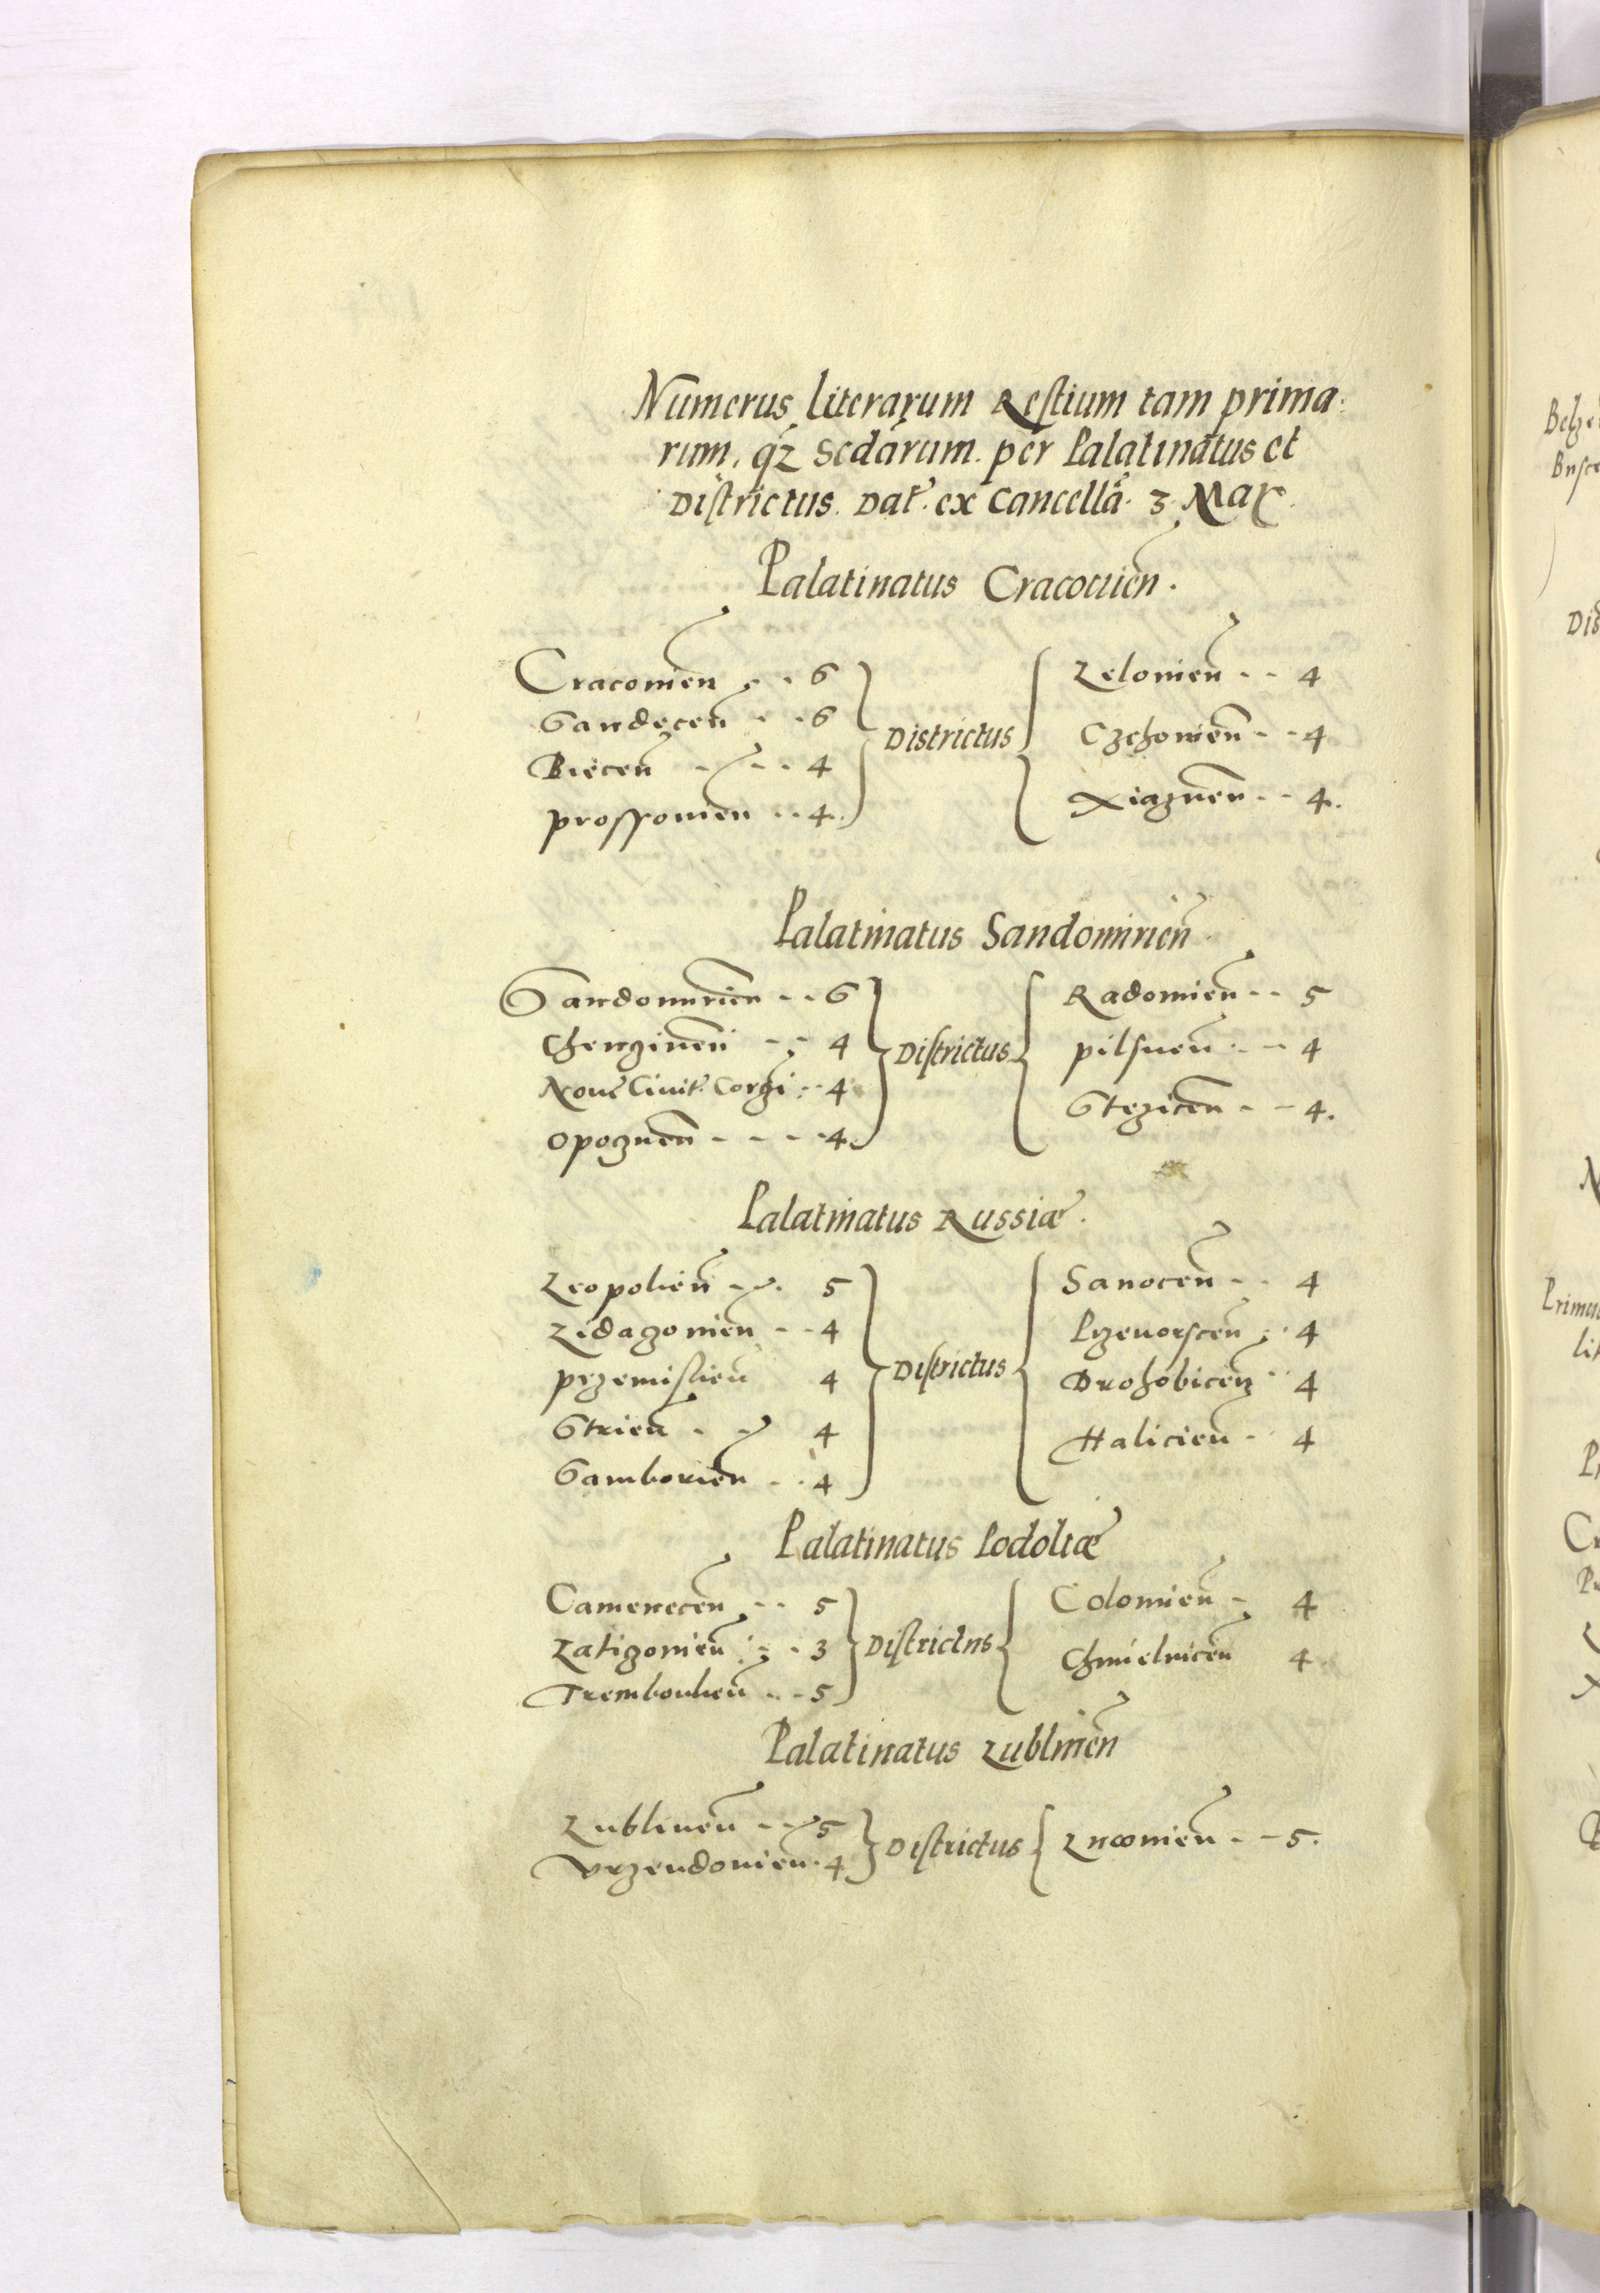 Numerus literarum Restium tam prima:
rum. qz Scdarum. per Palatinatus et
Districtus. Dat. ex Cancellā. 3. Mar.
Palatinatus Cracouien̄.
Cracouien̄ - - 6
Sandecen̄ - - 6
Biecen̄ - - - 4
Prossouien̄ - - 4.
Districtus
Lelouien̄ - - 4
Czchouien̄ - - 4
Xiaznen̄ - - 4.
Palatinatus Sandomirien̄
Sandomirien̄ - - 6
Chenzinen̄ - - 4
Noue Ciuit. Corzi - - 4
Opoznen̄ - - - - 4.
Districtus
Radomien̄ - - 5
Pilsnen̄ - - 4
Stezicen̄ - - 4.
Palatinatus Russiæ.
Leopolien̄ - - 5
Zidazouien̄ - - 4
Przemislien̄ 4
Strien̄ - - 4
Samborien̄ - - 4
Districtus
Sanocen̄ - - 4
Przeuorscen̄ - 4
Drohobicen̄ - 4
Halicien̄ - 4
Palatinatus Podoliæ
Camenecen̄ - - 5
Latizouien̄ - - 3
Tremboulien̄ - - 5
Districtus
Colomien̄ - 4
Chmielnicen̄ 4
Palatinatus Lublinen̄
Lublinen̄ - - 5
Vrzendouien̄ - 4
Districtus
Lucouien̄ - - 5.
Primu
Dis